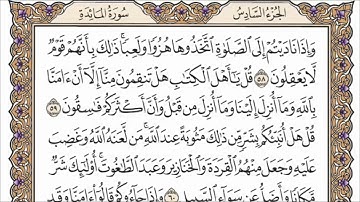 الجزء السادس سورة المائدة
وَإِذَا نَادَيْتُمْ إِلَى الصَّلَوٰةِ اتَّخَذُوهَا هُزُوًا وَلَعِبًا ذَٰلِكَ بِأَنَّهُمْ قَوْمٌ
لَّا يَعْقِلُونَ ٥٨ قُلْ يَٰٓأَهْلَ الْكِتَٰبِ هَلْ تَنقِمُونَ مِنَّآ إِلَّآ أَنْ ءَامَنَّا
بِاللَّهِ وَمَآ أُنزِلَ إِلَيْنَا وَمَآ أُنزِلَ مِن قَبْلُ وَأَنَّ أَكْثَرَكُمْ فَٰسِقُونَ ٥٩
قُلْ هَلْ أُنَبِّئُكُم بِشَرٍّ مِّن ذَٰلِكَ مَثُوبَةً عِندَ اللَّهِ مَن لَّعَنَهُ اللَّهُ وَغَضِبَ
عَلَيْهِ وَجَعَلَ مِنْهُمُ الْقِرَدَةَ وَالْخَنَازِيرَ وَعَبَدَ الطَّٰغُوتَ أُوْلَٰٓئِكَ شَرٌّ
مَّكَانًا وَأَضَلُّ عَن سَوَآءِ السَّبِيلِ ٦٠ وَإِذَا جَآءُوكُمْ قَالُوٓا ءَامَنَّا وَقَد